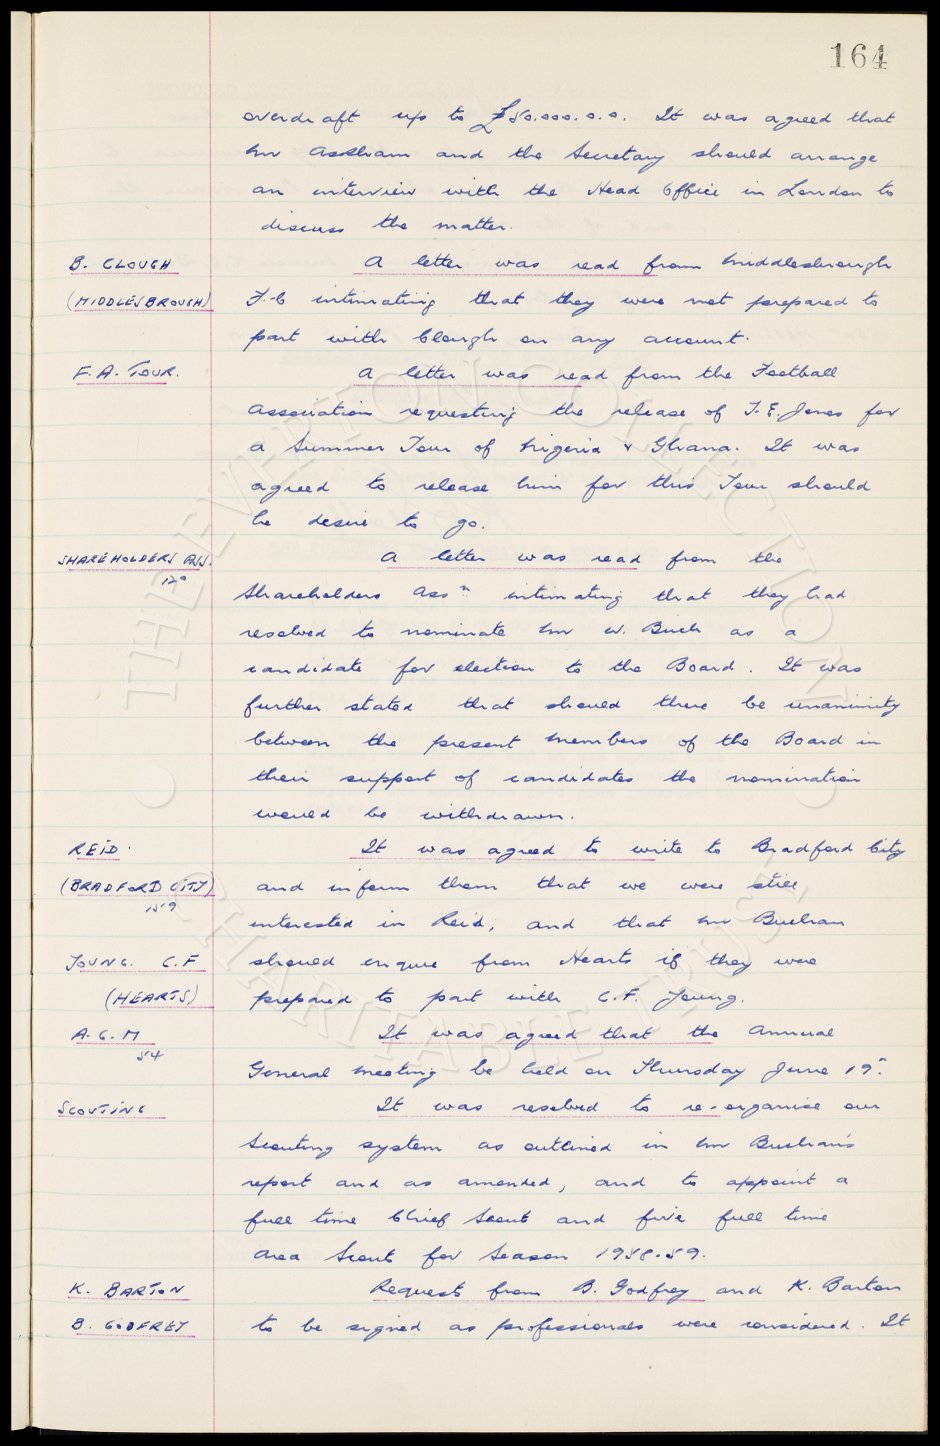 164
overdraft up to £50.000.0.0. It was agreed that
Mr Askham and the Secretary should arrange
an interview with the Head Office in London to
discuss the matter.
B. CLOUGH A letter was read from Middlesbrough
(MIDDLESBROUGH) F.C intimating that they were not prepared to
part with Clough on any account.
F.A. TOUR. A letter was read from the Football
Association requesting the release of T.E. Jones for
a Summer Tour of Nigeria & Ghana. It was
agreed to release him for this Tour should
he desire to go.
SHAREHOLDERS ASS. A letter was read from the
120
Shareholders Assn. intimating that they had
resolved to nominate Mr W. Buck as a
candidate for election to the Board. It was
further stated that should there be unanimity
between the present members of the Board in
their support of candidates the nomination
would be withdrawn.
REID. It was agreed to write to Bradford City
(BRADFORD CITY) and inform them that we were still
159
interested in Reid, and that Mr Buchan
YOUNG. C.F should enquire from Hearts if they were
(HEARTS) prepared to part with C.F. Young.
A.G.M It was agreed that the Annual
54
General Meeting be held on Thursday June 19th.
SCOUTING It was resolved to re-organise our
Scouting system as outlined in Mr Buchan's
report and as amended, and to appoint a
full time Chief Scout and five full time
area Scouts for Season 1958.59.
K. BARTON Requests from B. Godfrey and K. Barton
B. GODFREY to be signed as professionals were considered. It
THE EVERTON COLLECTION
CHARITABLE TRUST